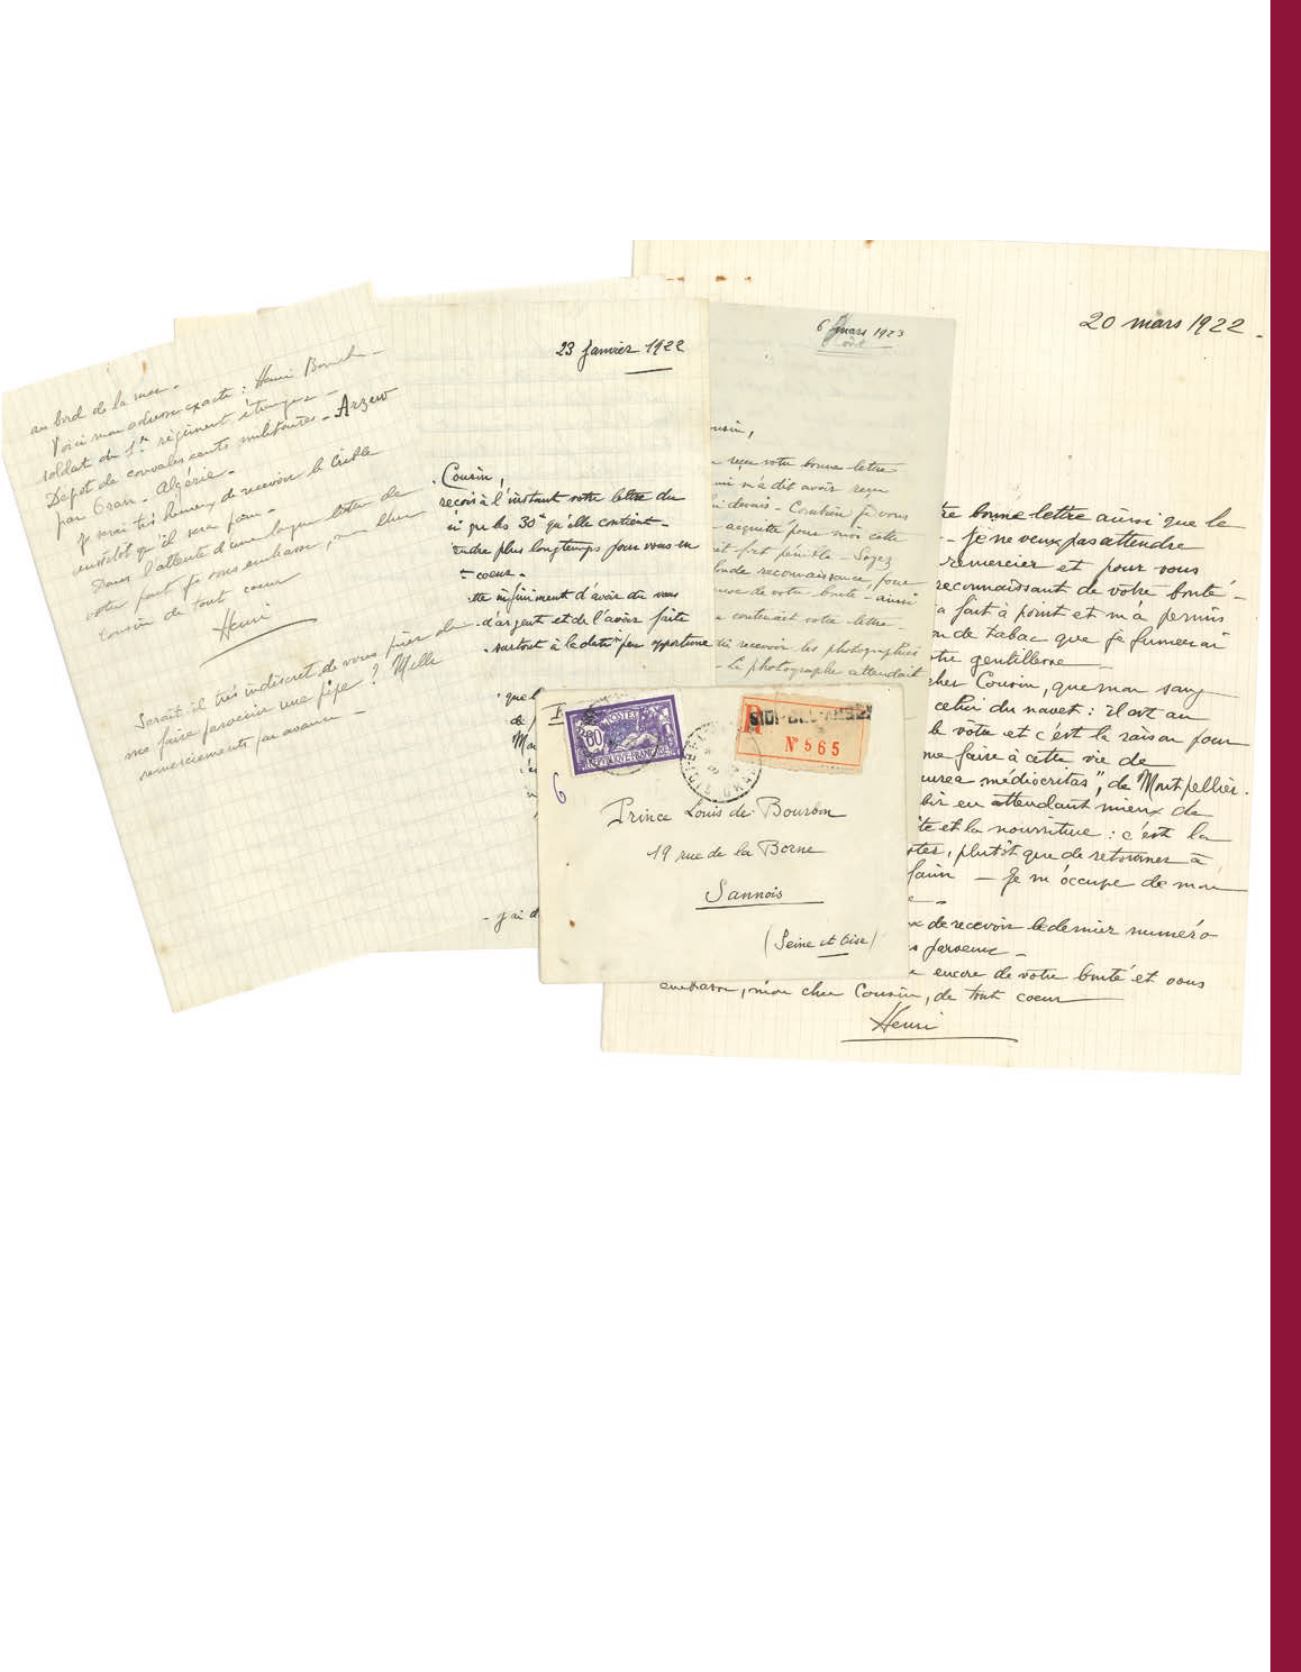 au bord de la mer.
Voici mon adresse exacte : Henri
soldat du 1er régiment étranger -
Dépôt de convalescents militaires - Arzew
par Oran - Algérie -
Je serai très heureux de recevoir le
aussitôt qu'il sera paru -
Dans l'attente d'une longue lettre de
votre part je vous embrasse, mon cher
Cousin de tout coeur
Henri
Serait-il très indiscret de vous prier de
me faire parvenir une pipe ? Mille
remerciements par avance -
23 Janvier 1922
Cousin,
reçois à l'instant votre lettre du
si que les 30 qu'elle contient -
endre plus longtemps pour vous en
coeur -
infiniment d'avoir dû vous
d'argent et de l'avoir faite
surtout à la date peu opportune
que l
de
Ma
- j'ai d
6 mars 1923
Août
usin,
reçu votre bonne lettre
ui m'a dit avoir reçu
devais - Combien je vous
acquitté pour moi cette
it fort pénible - Soyez
onde reconnaissance, pour
de votre bonté - ainsi
contenait votre lettre -
recevoir les photographies
- Le photographe attendait
POSTES
60
REPUBLIQUE FRANÇAISE
R
SIDI-BEL-ABBES
N° 565
6
Prince Louis de Bourbon
19 rue de la Borne
Sannois
(Seine et Oise)
20 mars 1922 -
re bonne lettre ainsi que le
- Je ne veux pas attendre
remercier et pour vous
reconnaissant de votre bonté -
a fait à point et m'a permis
de tabac que je fumerai
tre gentillesse -
cher Cousin, que mon sang
celui du navet : il est au
le vôtre et c'est la raison pour
me faire à cette vie de
aurea médiocritas", de Montpellier.
bir en attendant mieux de
te et la nourriture : c'est la
tes, plutôt que de retourner à
faim - Je m'occupe de mon
de recevoir le dernier numéro
s parvenu -
encore de votre bonté et vous
embrasse, mon cher Cousin, de tout coeur
Henri